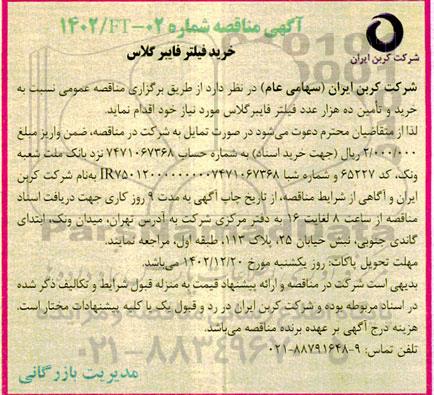 آگهی مناقصه شماره ۰۲-FT/۱۴۰۲
خرید فیلتر فایبر گلاس
شرکت کربن ایران
شرکت کربن ایران (سهامی عام) در نظر دارد از طریق برگزاری مناقصه عمومی نسبت به
خرید و تأمین ده هزار عدد فیلتر فایبرگلاس مورد نیاز خود اقدام نماید.
لذا از متقاضیان محترم دعوت می‌شود در صورت تمایل به شرکت در مناقصه، ضمن واریز مبلغ
۲/۰۰۰/۰۰۰ ریال (جهت خرید اسناد) به شماره حساب ۷۴۷۱۰۶۷۳۶۸ نزد بانک ملت شعبه
ونک، کد ۶۵۲۲۷ و شماره شبا IR۷۵۰۱۲۰۰۰۰۰۰۰۰۰۷۴۷۱۰۶۷۳۶۸ به‌نام شرکت کربن
ایران و آگاهی از شرایط مناقصه، از تاریخ چاپ آگهی به مدت ۹ روز کاری جهت دریافت اسناد
مناقصه از ساعت ۸ لغایت ۱۶ به دفتر مرکزی شرکت به آدرس تهران، میدان ونک، ابتدای
گاندی جنوبی، نبش خیابان ۲۵، پلاک ۱۱۳، طبقه اول، مراجعه نمایند.
مهلت تحویل پاکات: روز یکشنبه مورخ ۱۴۰۲/۱۲/۲۰ می‌باشد.
بدیهی است شرکت در مناقصه و ارائه پیشنهاد قیمت به منزله قبول شرایط و تکالیف ذکر شده
در اسناد مربوطه بوده و شرکت کربن ایران در رد و قبول یک یا کلیه پیشنهادات مختار است.
هزینه درج آگهی بر عهده برنده مناقصه می‌باشد.
تلفن تماس: ۹-۸۸۷۹۱۶۴۸-۰۲۱
مدیریت بازرگانی
ParsNamadData
۰۲۱-۸۸۳۴۹۶۷۰